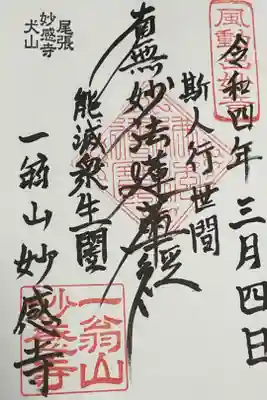 令和四年 三月四日
斯人行世間
南無妙法蓮華経
能滅衆生闇
一翁山妙感寺
尾張
妙感寺
犬山
一翁山
妙感寺